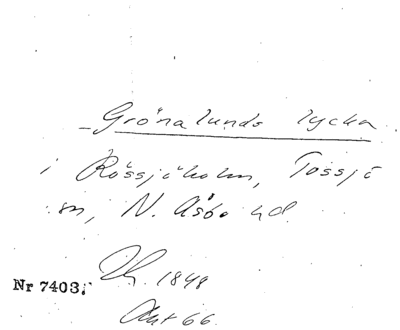 Grönalunds lycka
i Rössjöholm, Tossjö
sn, N. Åsbo hd
1848
Nr 7403.
Akt 66.